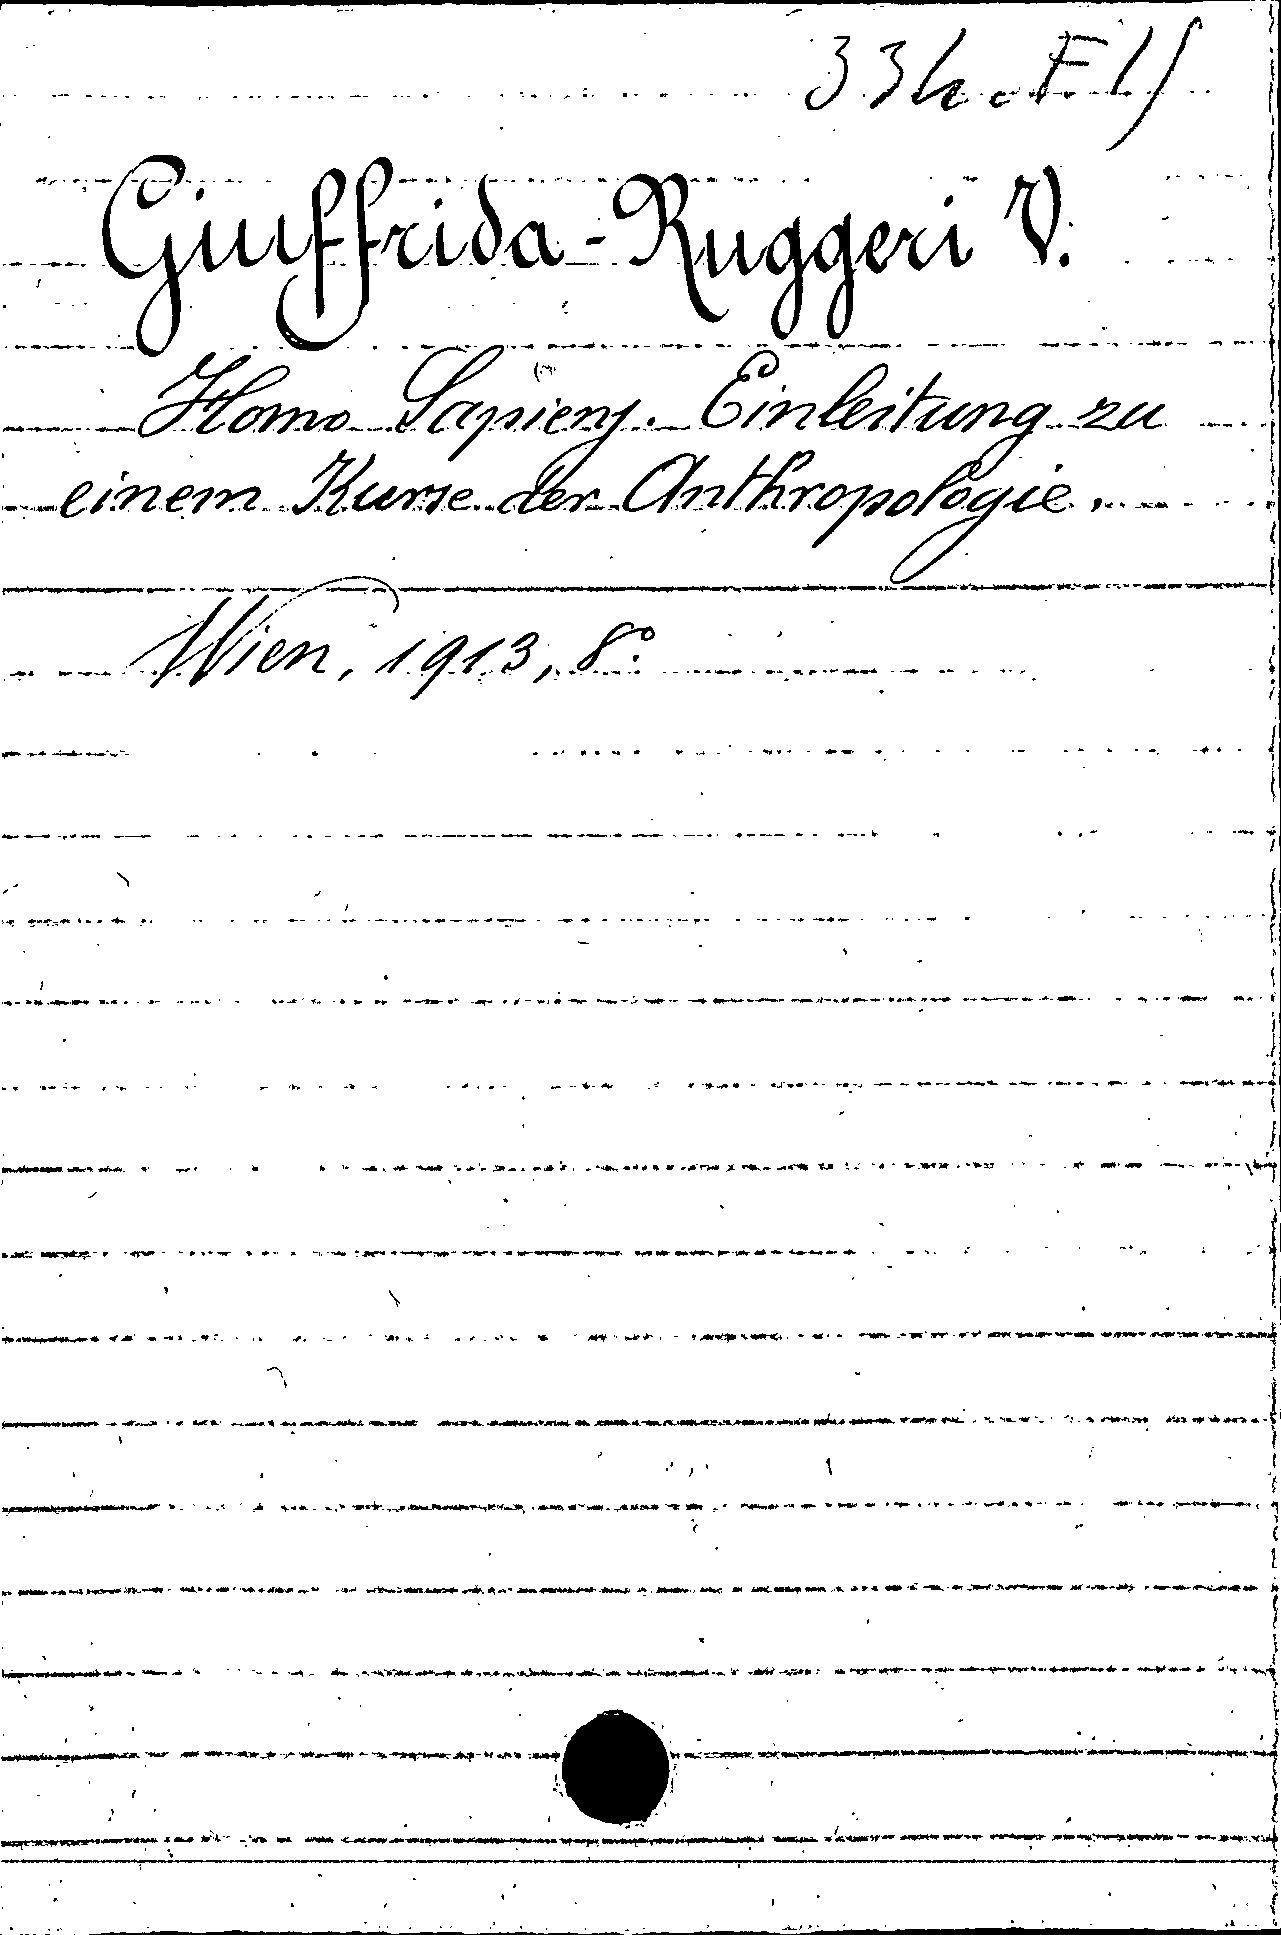 Giuffrida-Ruggeri V.
Homo Sapiens. Einleitung zu
einem Kurse der Anthropologie.
Wien, 1913, 8°.